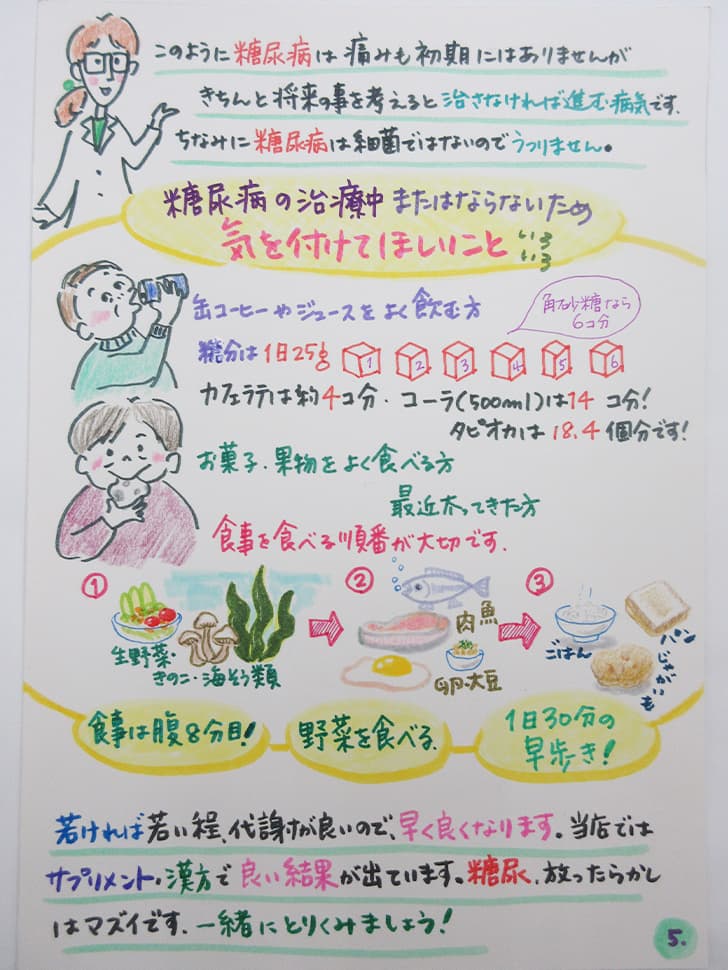 このように糖尿病は痛みも初期にはありませんが
きちんと将来の事を考えると治さなければ進む病気です.
ちなみに糖尿病は細菌ではないのでうつりません。
糖尿病の治療中またはならないため
気を付けてほしいこと いろいろ
缶コーヒーやジュースをよく飲む方
角砂糖なら
6コ分
糖分は1日25g 1 2 3 4 5 6
カフェラテは約4コ分・コーラ(500ml)は14コ分!
タピオカは18.4個分です!
お菓子・果物をよく食べる方
最近太ってきた方
食事を食べる順番が大切です.
① ② ③
生野菜・
きのこ・海そう類
肉魚
卵・大豆
ごはん
パン
じゃがいも
食事は腹8分目!
野菜を食べる.
1日30分の
早歩き!
若ければ若い程、代謝が良いので、早く良くなります。当店では
サプリメント・漢方で良い結果が出ています。糖尿、放ったらかし
はマズイです.一緒にとりくみましょう!
5.